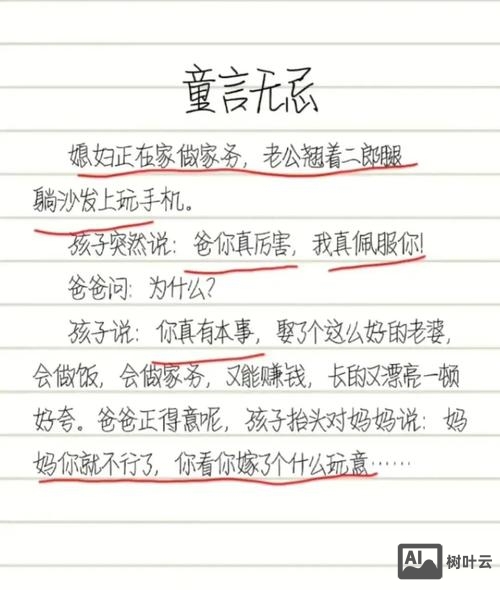 童言无忌
媳妇正在家做家务，老公翘着二郎腿
躺沙发上玩手机。
孩子突然说：爸你真厉害，我真佩服你！
爸爸问：为什么？
孩子说：你真有本事，娶了个这么好的老婆，
会做饭，会做家务，又能赚钱，长的又漂亮一顿
好夸。爸爸正得意呢，孩子抬头对妈妈说：妈
妈你就不行了，你看你嫁了个什么玩意……
AI 树叶云